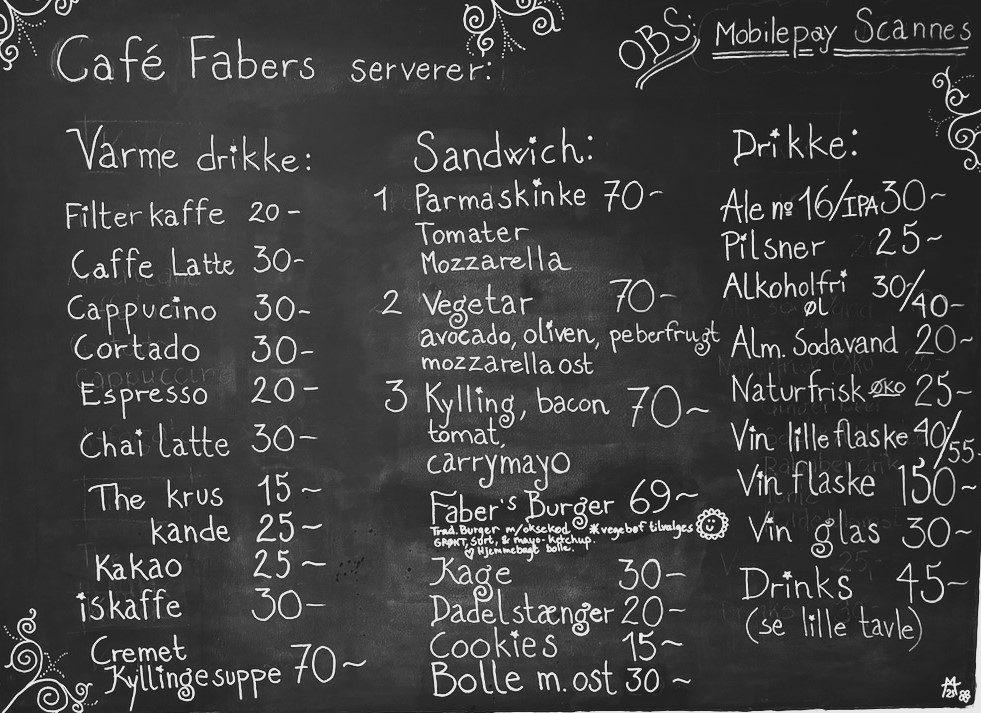 Café Fabers serverer:
OBS: Mobilepay Scannes
Varme drikke:
Filterkaffe 20-
Caffe Latte 30-
Cappucino 30-
Cortado 30-
Espresso 20-
Chai latte 30-
The krus 15~
kande 25~
Kakao 25~
iskaffe 30-
Cremet
Kyllingesuppe 70~
Sandwich:
1 Parmaskinke 70-
Tomater
Mozzarella
2 Vegetar 70-
avocado, oliven, peberfrugt
mozzarella ost
3 Kylling, bacon 70~
tomat,
carrymayo
Faber's Burger 69~
Trad. Burger m/oksekød. *vegebøf tilvalges
GRØNT, Surt, & mayo-ketchup.
♡ Hjemmebagt bolle.
Kage 30-
Dadelstænger 20-
Cookies 15~
Bolle m. ost 30 ~
Drikke:
Ale nº 16/IPA 30~
Pilsner 25~
Alkoholfri 30/40-
øl
Alm. Sodavand 20~
Naturfrisk ØKO 25~
Vin lille flaske 40/55-
Vin flaske 150-
Vin glas 30~
Drinks 45~
(se lille tavle)